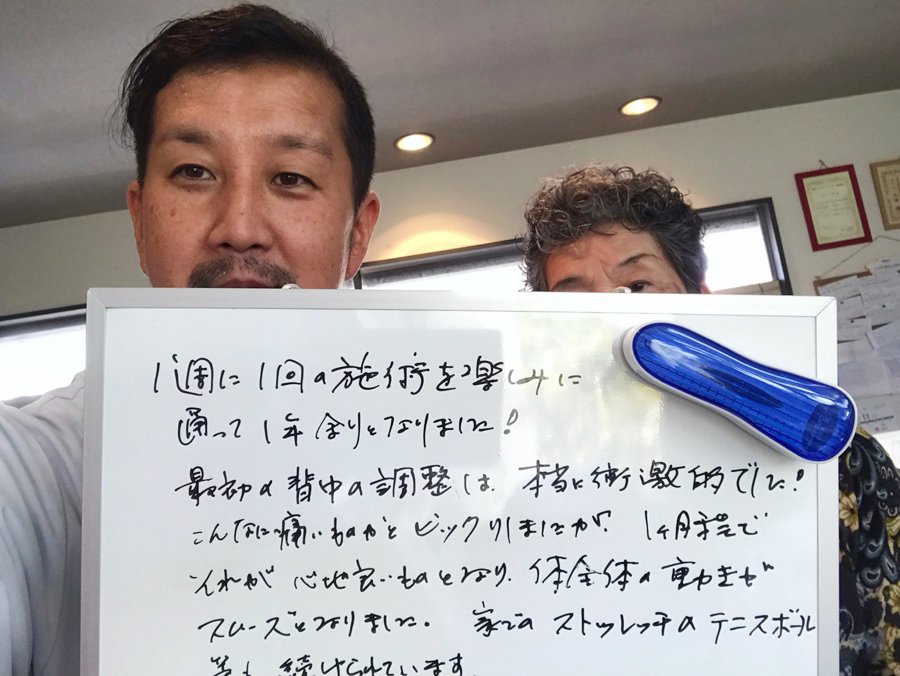 1週に1回の施術を楽しみに
通って1年余りとなりました!
最初の背中の調整は、本当に衝激的でした!
こんなに痛いものかとビックリしましたが、1ヶ月程で
それが心地良いものとなり、体全体の動きが
スムーズとなりました。家でのストレッチのテニスボール
等も続けられています